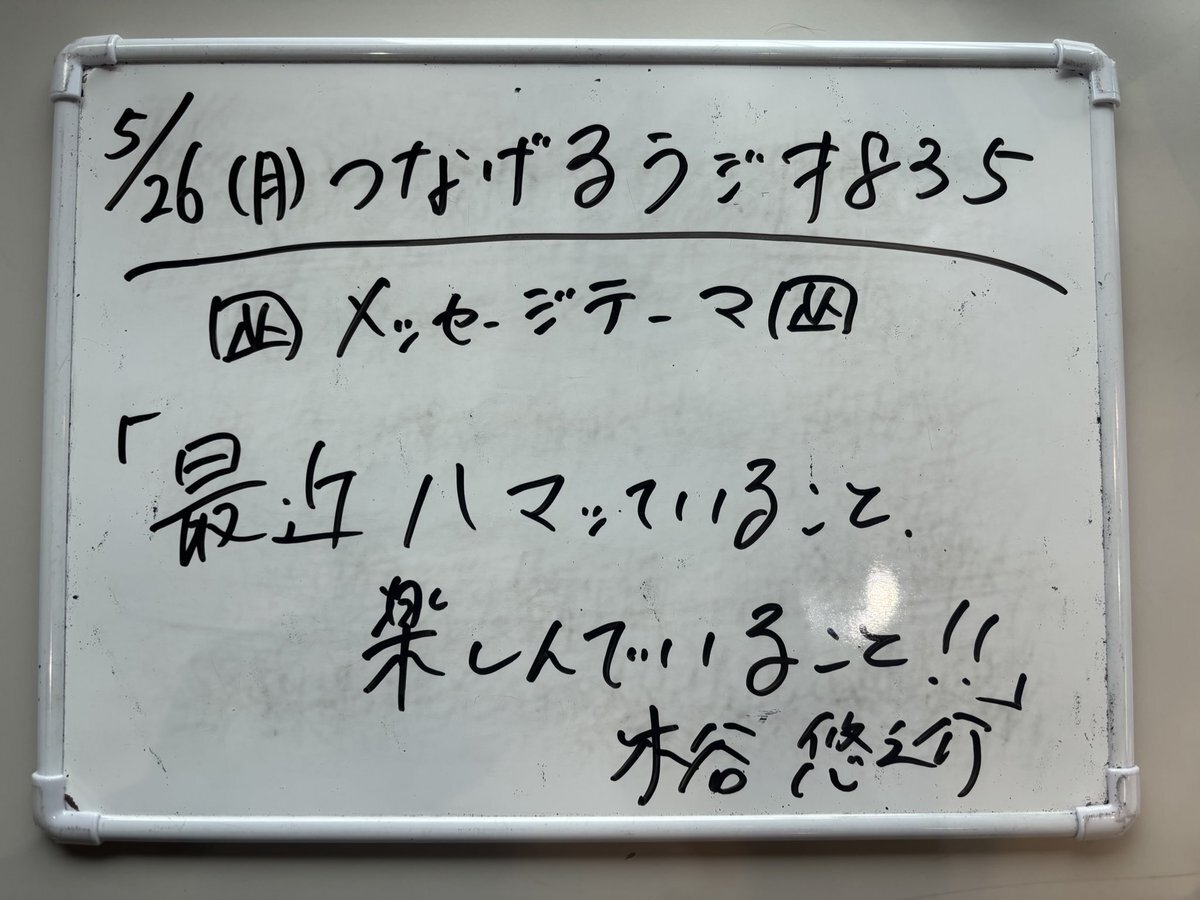 5/26(月)つなげるラジオ835
メッセージテーマ
「最近ハマッていること、
楽しんでいること!!」
木谷 悠之介